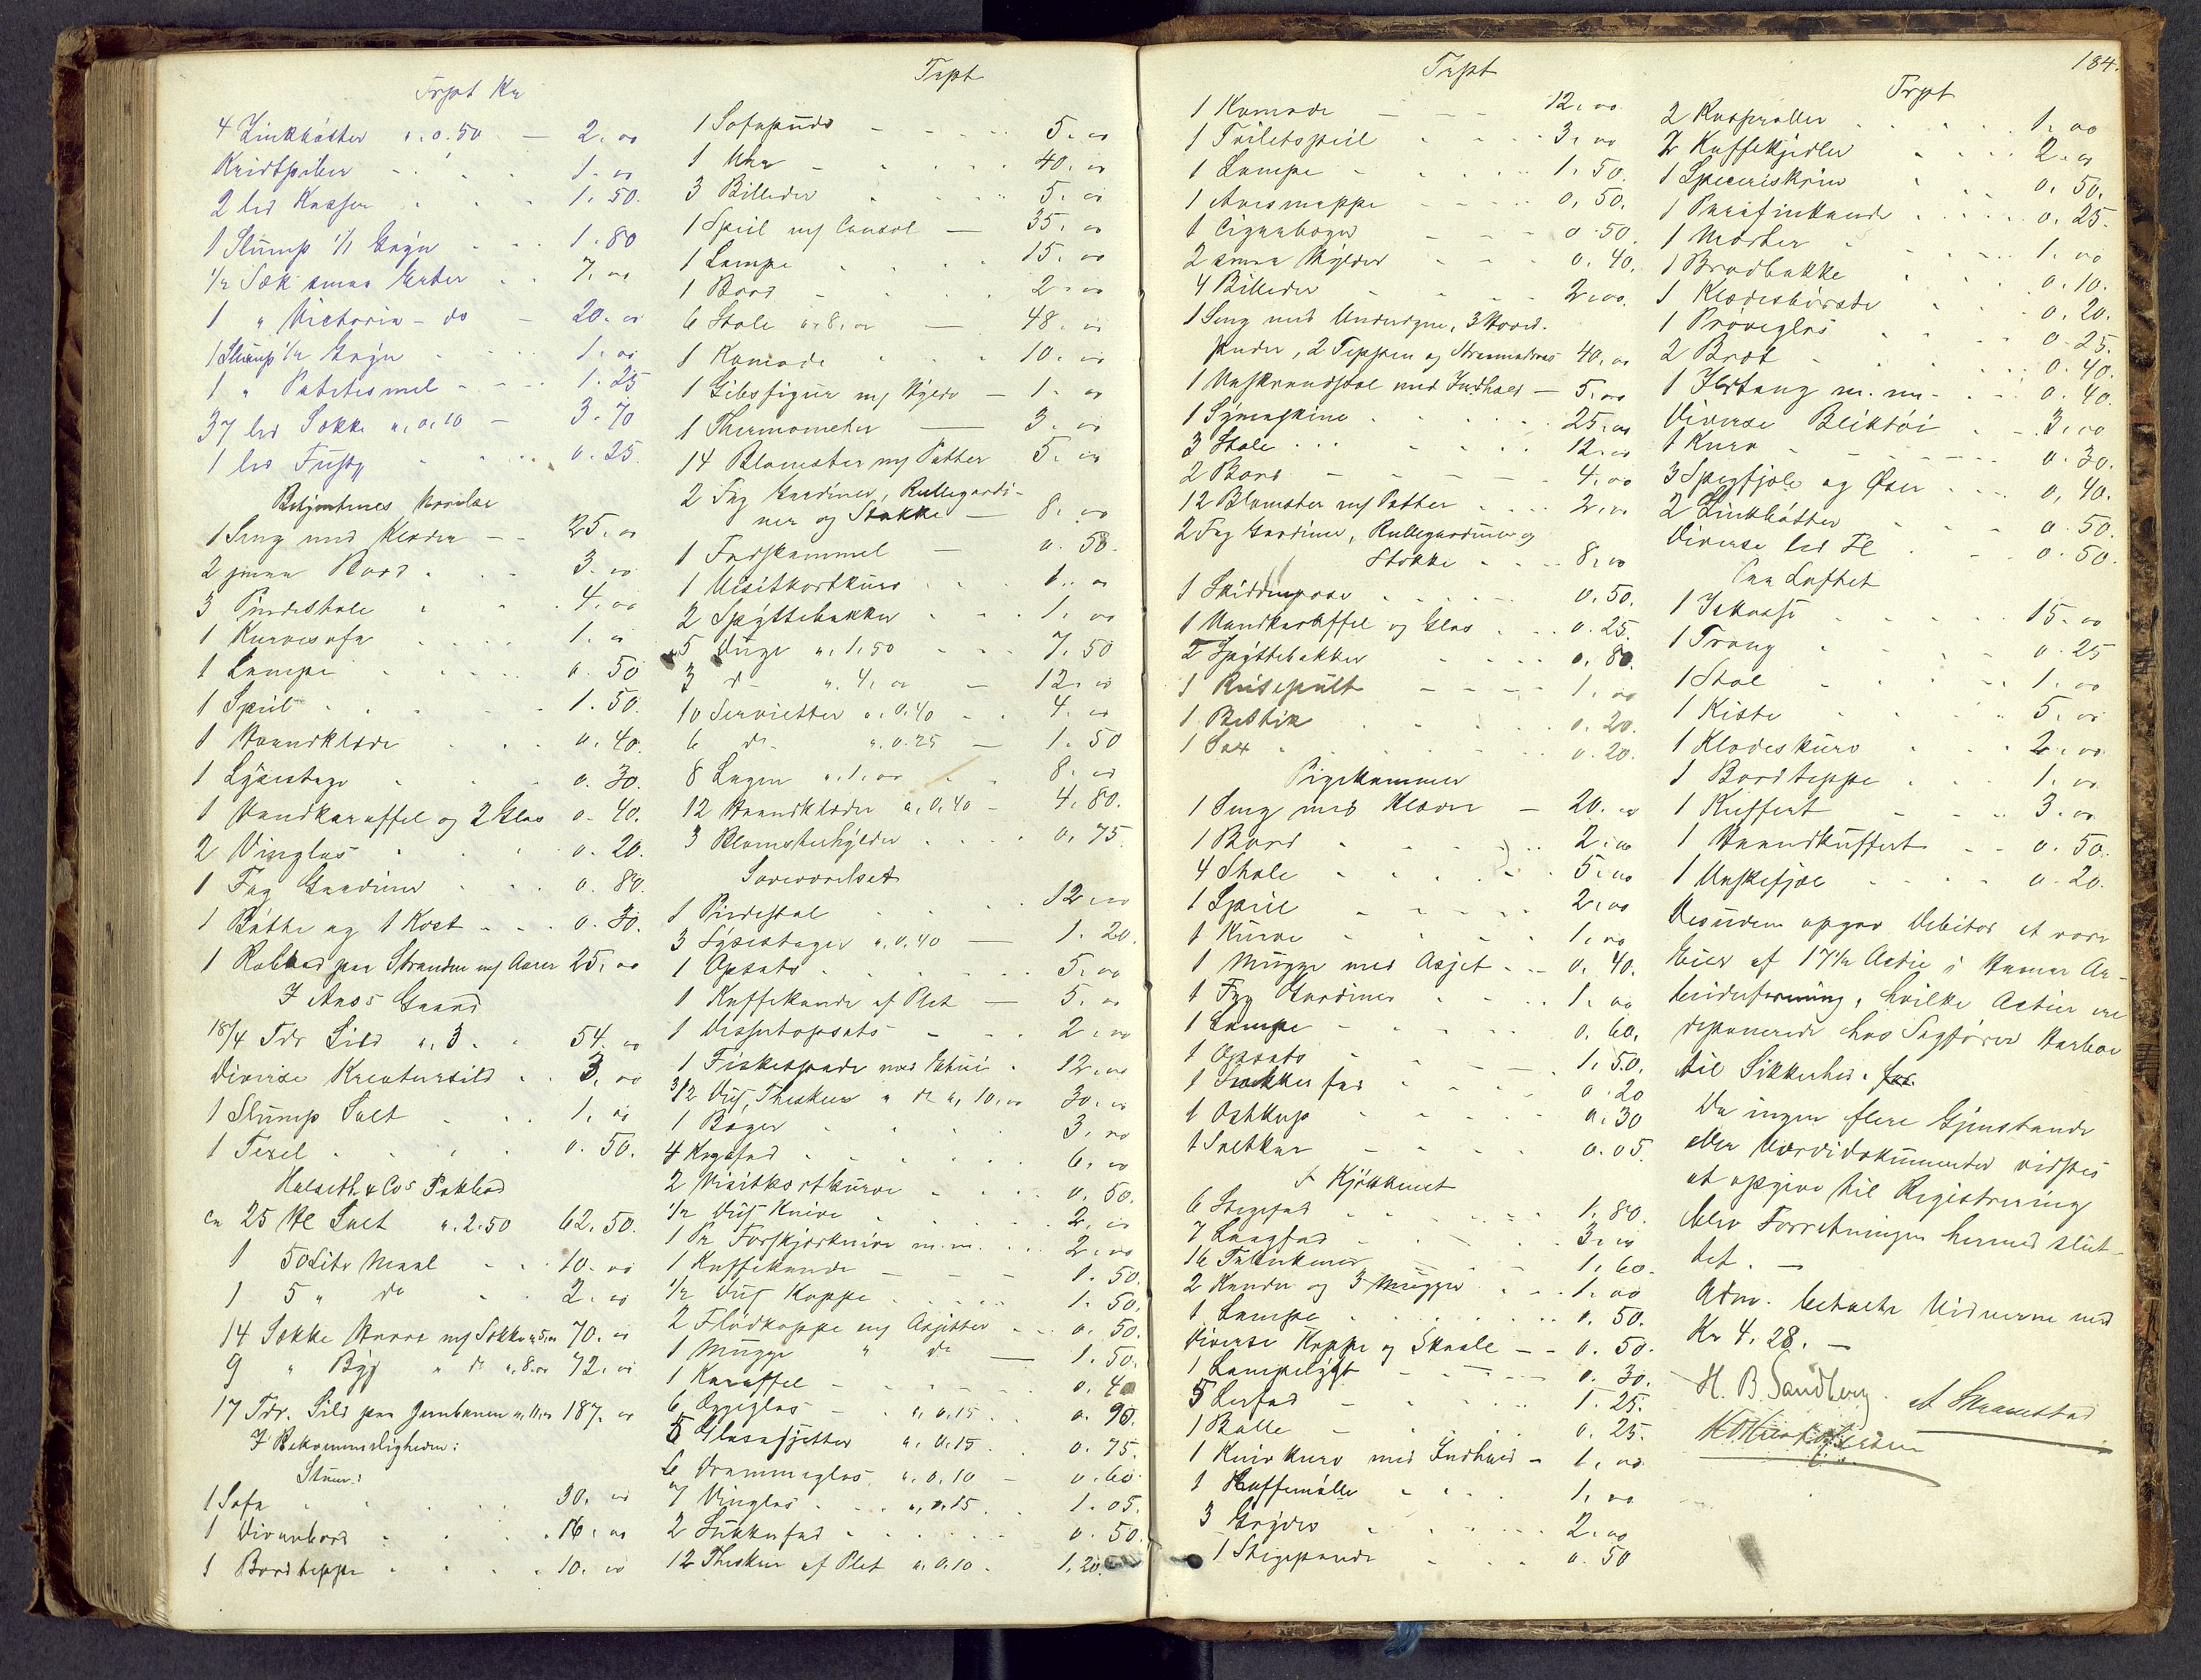 Trpt Kr
4 Zinkbøtter a. 0.50 — 2. 00
Kridtpiber 1. 00
2 led Kasser 1. 50.
1 Slump 1/1 Gryn 1. 80
1/2 Sæk smaa Erter 7. 00
1 " Victoria - do 20. 00
1 Slump 1/2 Gryn 1. 00
1 " Potetesmel 1. 25
37 led Sække a. 0.10 3. 70
1 led Fustg 0. 25
Betjentenes Værelse
1 Seng med Klæder 25. 00
2 smaa Bord 3. 00
3 Pindestole 4. 00
1 Kurvesofa 1. 00
1 Lampe 0. 50
1 Speil 1. 50.
1 Haandklæde 0. 40.
1 Lysestage 0. 30.
1 Vandkaraffel og 2 Glas 0. 40.
2 Vinglas 0. 20.
1 Fag Gardiner 0. 80.
1 Bøtte og 1 Kost 0. 30.
1 Robaad paa Stranden m/ Aarer 25. 00
I Aaos Gaard
18/4 Tdr Sild a. 3. 54. 00
Diverse Kreatursild 3. 00
1 Slump Salt 1. 00
1 Texel 0. 50.
Halseth & Cos Pakbod
ca 25 Hl Salt a. 2.50 62. 50.
1 50 Litr Maal 10. 00
1 5 " do 2. 00
14 Sække Havre m/ Sække a 5.00 70. 00
9 " Byg " do a. 8.00 72. 00
17 Tdr. Sild paa Jernbanen a. 11.00 187. 00
I Bekvemmeligheden:
Stuen:
1 Sofa 30. 00
1 Divanbord 16. 00
1 Bordteppe 10. 00
Trpt
1 Sofapude 5. 00
1 Uhr 40. 00
3 Billeder 5. 00
1 Speil m/ Consol — 35. 00
1 Lampe 15. 00
1 Bord 2. 00
6 Stole a. 8. 00 — 48. 00
1 Komode 10. 00
1 Gibsfigur m/ Hylde — 1. 00
1 Thermometer — 3. 00
14 Blomster m/ Potter 5. 00
2 Fag Gardiner, Rullegardi-
ner og Stokke — 8. 00
1 Fodskammel — 0. 50.
1 Visitkortkurv 1. 00
2 Spyttebakker 1. 00
5 Duge a. 1,50 7. 50
3 do a. 4. 00 — 12. 00
10 Servietter a. 0.40 4. 00
6 do a. 0.25 — 1. 50
8 Lagen a. 1.00 8. 00
12 Haandklæder a. 0.40 4. 80.
3 Blomsterhylder 0. 75.
Soveværelset
1 Pindestol 12. 00
3 Lysestager a. 0.40 — 1. 20.
1 Opsats 5. 00
1 Kaffekande af Plet — 5. 00
1 Dessertopsats 2. 00
1 Fiskespade med Etui 12. 00
3/12 Dus. Theskeer a do a. 10.00 30. 00
1 Bæger 3. 00
4 Kagefad 6. 00
2 Visitkortkurve 0. 50.
1/2 Dus Knive 2. 00
1 Pr Forskjærknive m.m. 2. 00
1 Kaffekande 1. 50.
1/2 Dus Koppe 1. 50.
2 Flødkoppe m/ Asjetter 0. 50.
1 Mugge " do — 1. 50.
1 Karaffel 0. 40
6 Eggeglas a. 0,15 0. 90.
5 Glasasjetter a. 0.15 0. 75.
6 Drammeglas a. 0.10 — 0. 60.
7 Vinglas a. 0.15 1. 05.
2 Sukkerfad 0. 50.
12 Theskeer af Plet a. 0.10 1. 20.
Trpt
1 Komode 12. 00
1 Toiletspeil 3. 00
1 Lampe 1. 50.
1 Avismappe 0. 50.
1 Cigarbæger 0. 50.
2 smaa Hylder 0. 40.
4 Billeder 2. 00.
1 Seng med Underdyne, 3 Hoved-
puder, 2 Teppen og 40. 00
1 Vaskvandstol med Indhold — 5. 00
1 Symaskine 25. 00
3 Stole 12. 00
2 Bord 4. 00
12 Blomster m/ Potter 2. 00
2 Fag Gardiner, Rullegardiner og
Stokke 8. 00
1 Skiddenpose 0. 50.
1 Vandkaraffel og Glas 0. 25.
2 Spyttebakker 0. 80.
1 Reisepult 1. 00
1 Bestik 0. 20.
1 Sax 0. 20.
Pigekammer
1 Seng med Klæder — 20. 00
1 Bord 2. 00
4 Stole 5. 00
1 Speil 2. 00
1 Kurv 1. 00
1 Mugge med Asjet 0. 40.
1 Fag Gardiner 1. 00
1 Lampe 0. 60.
1 Opsats 1. 50.
1 Sukkerfad 0. 20
1 Ostekop 0. 30
1 Saltkar 0. 05.
I Kjøkkenet
6 Stegefad 1. 80.
7 Langfad 3. 00
16 Tallerkener 1. 60.
2 Kander og 3 Mugger 1. 00
1 Lampe 0. 50.
Diverse Koppe og Skaale — 0. 50.
1 Lampelygt 0. 30.
5 Lerfad 1. 25.
1 Balle 0. 25.
1 Knivkurv med Indhold — 1. 00
1 Kaffemølle 1. 00
3 Gryder 2. 00
1 Stegepande 0. 50
184.
Trpt
2 Kasseroller 1. 00
2 Kaffekjedler 2. 00
1 Speceriskrin 0. 50.
1 Parafinkande 0. 25.
1 Morter 1. 00
1 Brødbakke 0. 10.
1 Klædesbørste 0. 20.
1 Prøveglas 0. 25.
2 Bræt 0. 40.
1 Ildtang m. m. 0. 40.
Diverse Bliktøi 3. 00
1 Kurv 0. 30.
3 Spegfjøle og Øser 0, 40.
2 Zinkbøtter 0. 50.
Diverse led Fl 0. 50.
Paa Loftet
1 Iskasse 15. 00
1 Traug 0. 25
1 Stol 1. 00
1 Kiste 5. 00
1 Klædeskurv 2. 00
1 Bordteppe 1. 00
1 Kuffert 3. 00
1 Haandkuffert 0. 50.
1 Vaskefjæl 0. 20.
Desuden opgav Debitor at være
Eier af 17 1/2 Actie i Hamar Ar-
beiderforening, hvilke Actier ere
deponerede hos Sagfører Harboe
til Sikkerhed. for
Da ingen flere Gjenstande
eller Værdidokumenter vidstes
at opgive til Registrering
blev Forretningen hermed slut-
tet. —
Adm. betalte Vidnerne med
Kr 4. 28. —
H. B. Sandberg.
A Skramstad